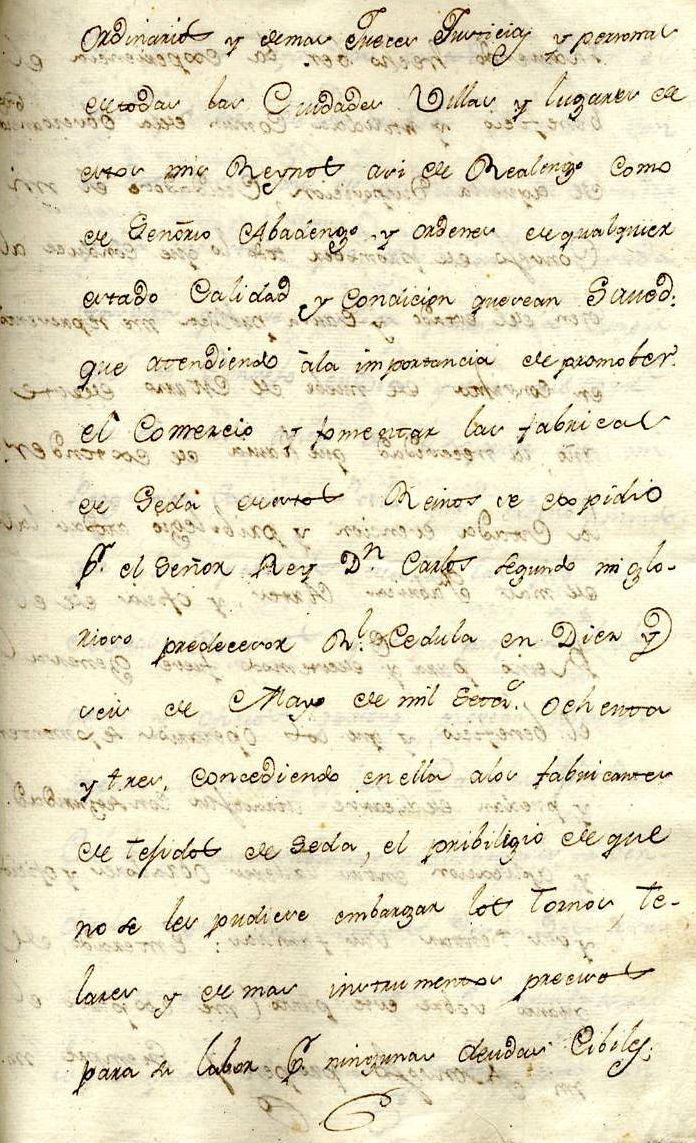 Ordinarios y demas Jueces Justicias y personas
detodas las Ciudades Villas y lugares de
estos mis Reynos asi de Realengo como
de Señorio Abadengo y ordenes de qualquier
estado Calidad y Condicion que sean Saved:
que atendiendo àla importancia de promober
el Comercio y fomentar las fabricas
de Seda, de estos Reinos se expidio
Pr. el Señor Rey Dn Carlos segundo mi glo-
rioso predecesor Rl. Cedula en Diez y
seis de Mayo de mil setos. ochenta
y tres, concediendo en ella alos fabricantes
de tesidos de Seda, el pribiligio de que
no se les pudiese embargar los tornos, te-
lares y demas instrumentos precisos
para su labor Pr. ningunas deudas Cibiles;